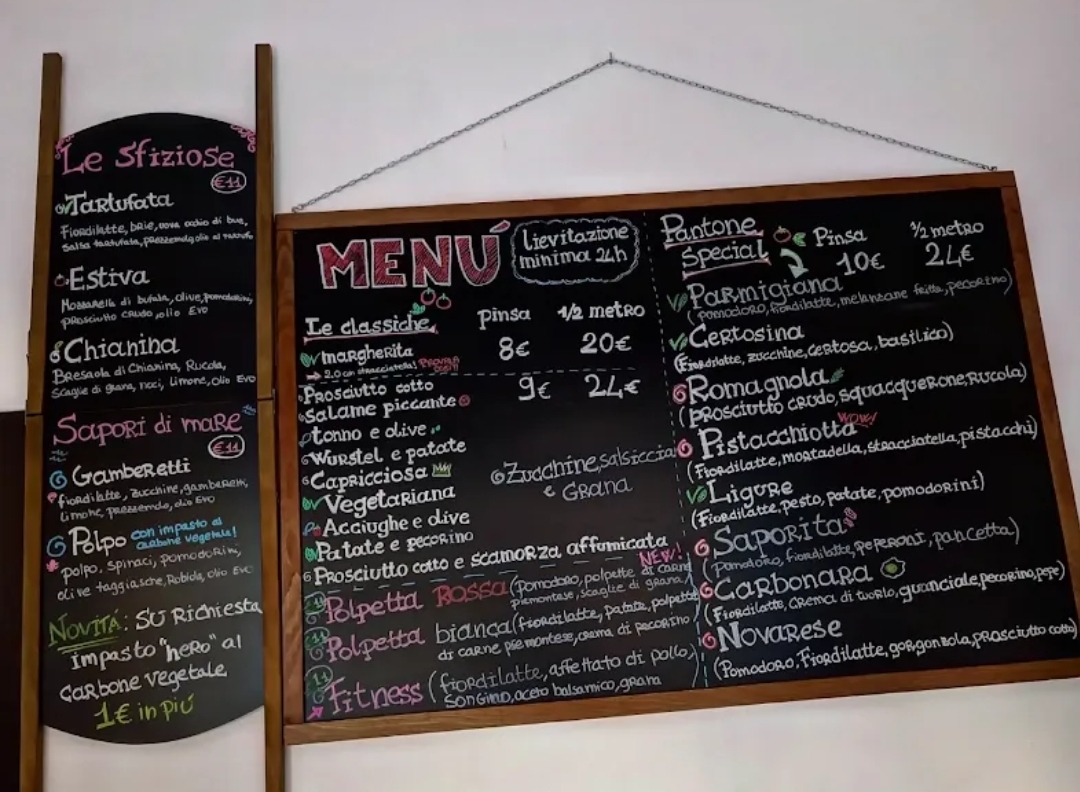 Le Sfiziose
€11
Tartufata
Fiordilatte, brie, uova occhio di bue,
Salsa tartufata, prezzemolo, olio al tartufo
Estiva
Mozzarella di bufala, olive, pomodorini,
prosciutto crudo, olio EVO
Chianina
Bresaola di Chianina, Rucola,
Scaglie di grana, noci, limone, olio EVO
Sapori di mare
€11
Gamberetti
fiordilatte, zucchine, gamberetti,
limone, prezzemolo, olio Evo
Polpo con impasto al
carbone vegetale!
polpo, spinaci, pomodorini,
olive taggiasche, Robiola, olio Evo
NOVITÁ: SU Richiesta
impasto "nero" al
carbone vegetale
1€ in più
MENÚ
lievitazione
minima 24h
Le classiche
Pinsa 1/2 metro
margherita 8€ 20€
→ 2.0 con stracciatella!
Prosciutto cotto 9€ 24€
salame piccante
tonno e olive
Wurstel e patate
Capricciosa
Vegetariana
Acciughe e olive
Patate e pecorino
Prosciutto cotto e scamorza affumicata
Zucchine, salsiccia
e GRANA
NEW!
11 Polpetta ROSSA (pomodoro, polpette di carne
piemontese, scaglie di grana)
11 Polpetta bianca (fiordilatte, patate, polpette
di carne piemontese, crema di pecorino)
11 Fitness (fiordilatte, affettato di pollo,
SONGINO, aceto balsamico, grana
Pantone
special
Pinsa 1/2 metro
10€ 24€
Parmigiana
(pomodoro, fiordilatte, melanzane fritte, pecorino)
Certosina
(Fiordilatte, zucchine, certosa, basilico)
Romagnola
(prosciutto crudo, squacquerone, rucola)
Pistacchiotta WOW!
(Fiordilatte, mortadella, stracciatella, pistacchi)
Ligure
(Fiordilatte, pesto, patate, pomodorini)
Saporita
(Pomodoro, fiordilatte, peperoni, pancetta)
Carbonara
(Fiordilatte, crema di tuorlo, guanciale, pecorino, pepe)
Novarese
(Pomodoro, Fiordilatte, gorgonzola, prosciutto cotto)